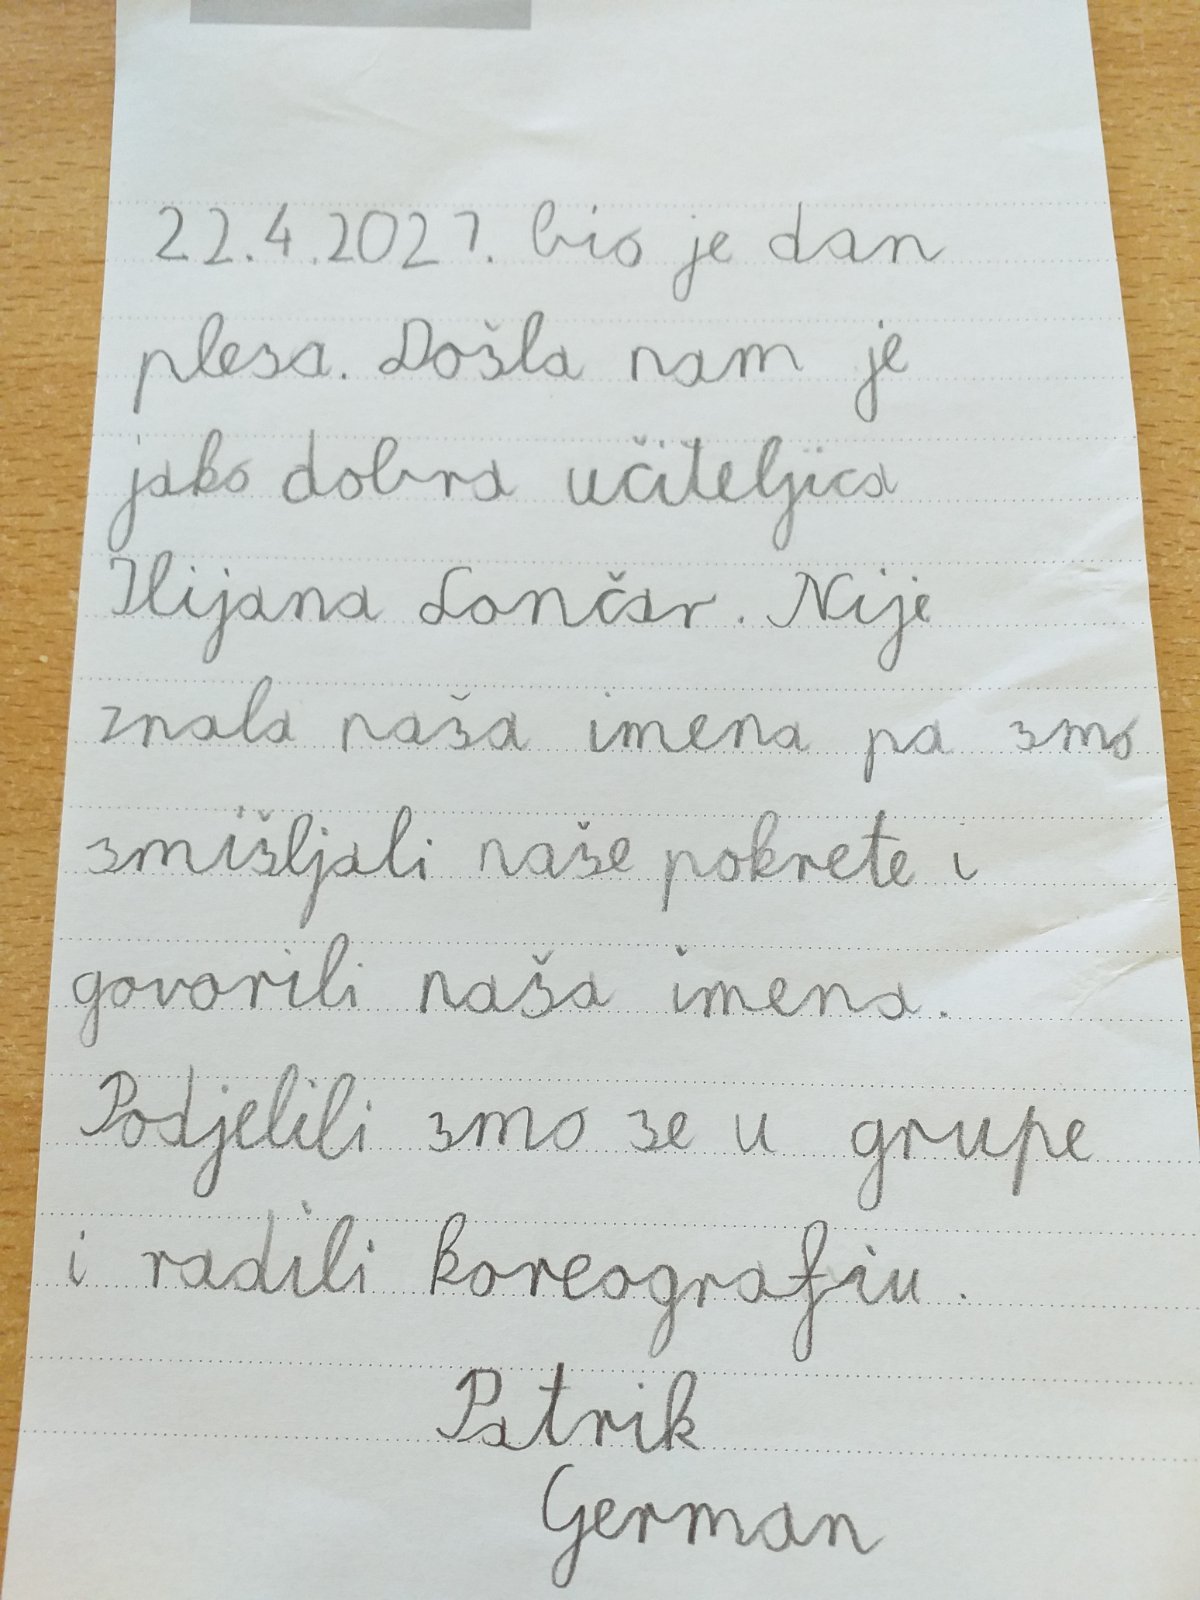 22.4.2021. bio je dan
plesa. Došla nam je
jako dobra učiteljica
Ilijana Lončar. Nije
znala naša imena pa smo
smišljali naše pokrete i
govorili naša imena.
Podjelili smo se u grupe
i radili koreografiu.
Patrik
German